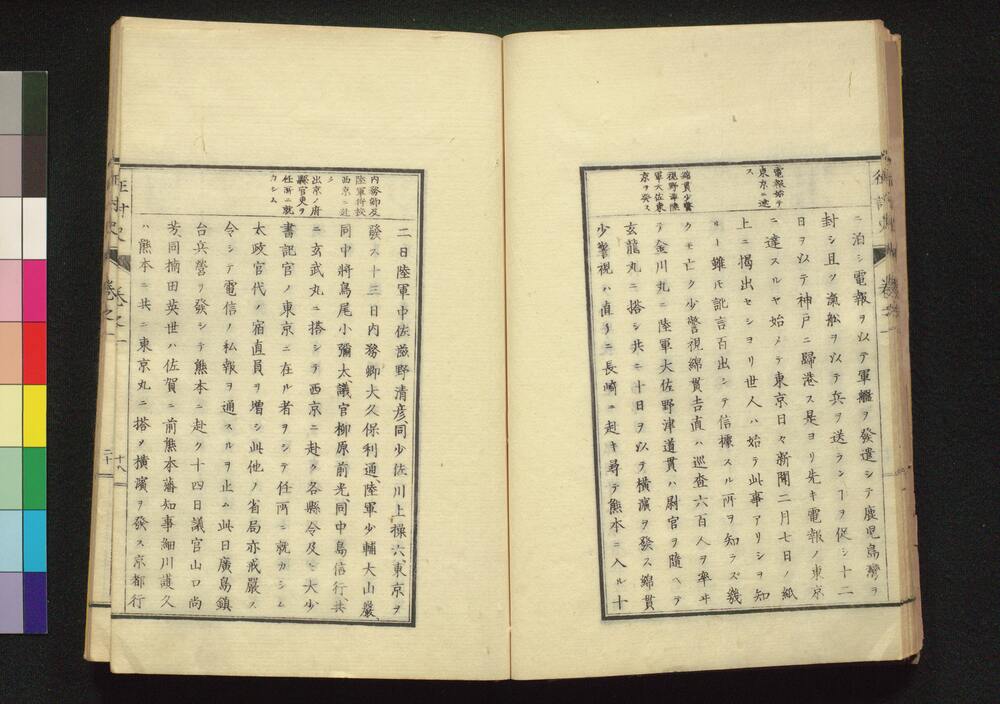 ニ泊シ電報ヲ以テ軍艦ヲ發遣シテ鹿児島灣ヲ
封シ且ツ漁船ヲ以テ兵ヲ送ランヿヲ促シ十二
日ヲ以テ神戸ニ歸港ス是ヨリ先キ電報ノ東京
ニ達スルヤ始メテ東京日々新聞二月七日ノ紙
上ニ掲出セシヨリ世人ハ始テ此事アリシヲ知
ルト雖モ訛言百出シテ信據スル所ヲ知ラズ幾
クモ亡ク少警視綿貫吉直ハ巡査六百人ヲ率ヰ
テ金川丸ニ陸軍大佐野津道貫ハ尉官ヲ随ヘテ
玄龍丸ニ搭シ共ニ十日ヲ以テ横濱ヲ發ス綿貫
少警視ハ直チニ長崎ニ赴キ尋テ熊本ニ入ル十
電報始テ
東京ニ達
ス
綿貫少警
視野津陸
軍大佐東
京ヲ発ス
二日陸軍中佐滋野清彦、同少佐川上操六、東京ヲ
發ス十三日内務卿大久保利通、陸軍少輔大山巌、
同中將鳥尾小彌太、議官柳原前光、同中島信行、共
ニ玄武丸ニ搭シテ西京ニ赴ク各縣令及ヒ大少
書記官ノ東京ニ在ル者ヲシテ任所ニ就カシム
太政官代ノ宿直員ヲ増シ此他ノ省局亦戒嚴ス
令シテ電信ノ私報ヲ通スルヲ止ム此日廣島鎮
台兵營ヲ發シテ熊本ニ赴ク十四日議官山口尚
芳同楠田英世ハ佐賀ニ前熊本藩知事細川護久
ハ熊本ニ共ニ東京丸ニ搭メ横濱ヲ發ス京都行
内務卿及
陸軍将校
西京ニ赴
ク
出京ノ府
縣官吏ヲ
任所ニ就
カシム
卷之一
十八